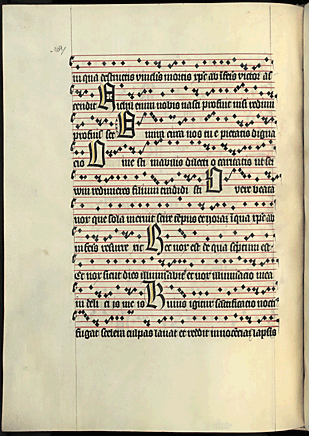 in qua destructis vinculis mortis xpc ab inferis victor as
cendit Nichil enim nobis nasci profuit nisi redimi
profuisset O mira circa nos tue pietatis digna
cio O inestimabilis dilectio caritatis ut ser
vum redimeres filium tradidisti O vere beata
nox que sola meruit scire tempus et horam in qua xpc ab
inferis resurrexit Hec nox est de qua scriptum est
Et nox sicut dies illuminabitur et nox illuminacio mea
in deliciis meis Huius igitur sanctificacio noctis
fugat scelera culpas lavat et reddit innocenciam lapsis